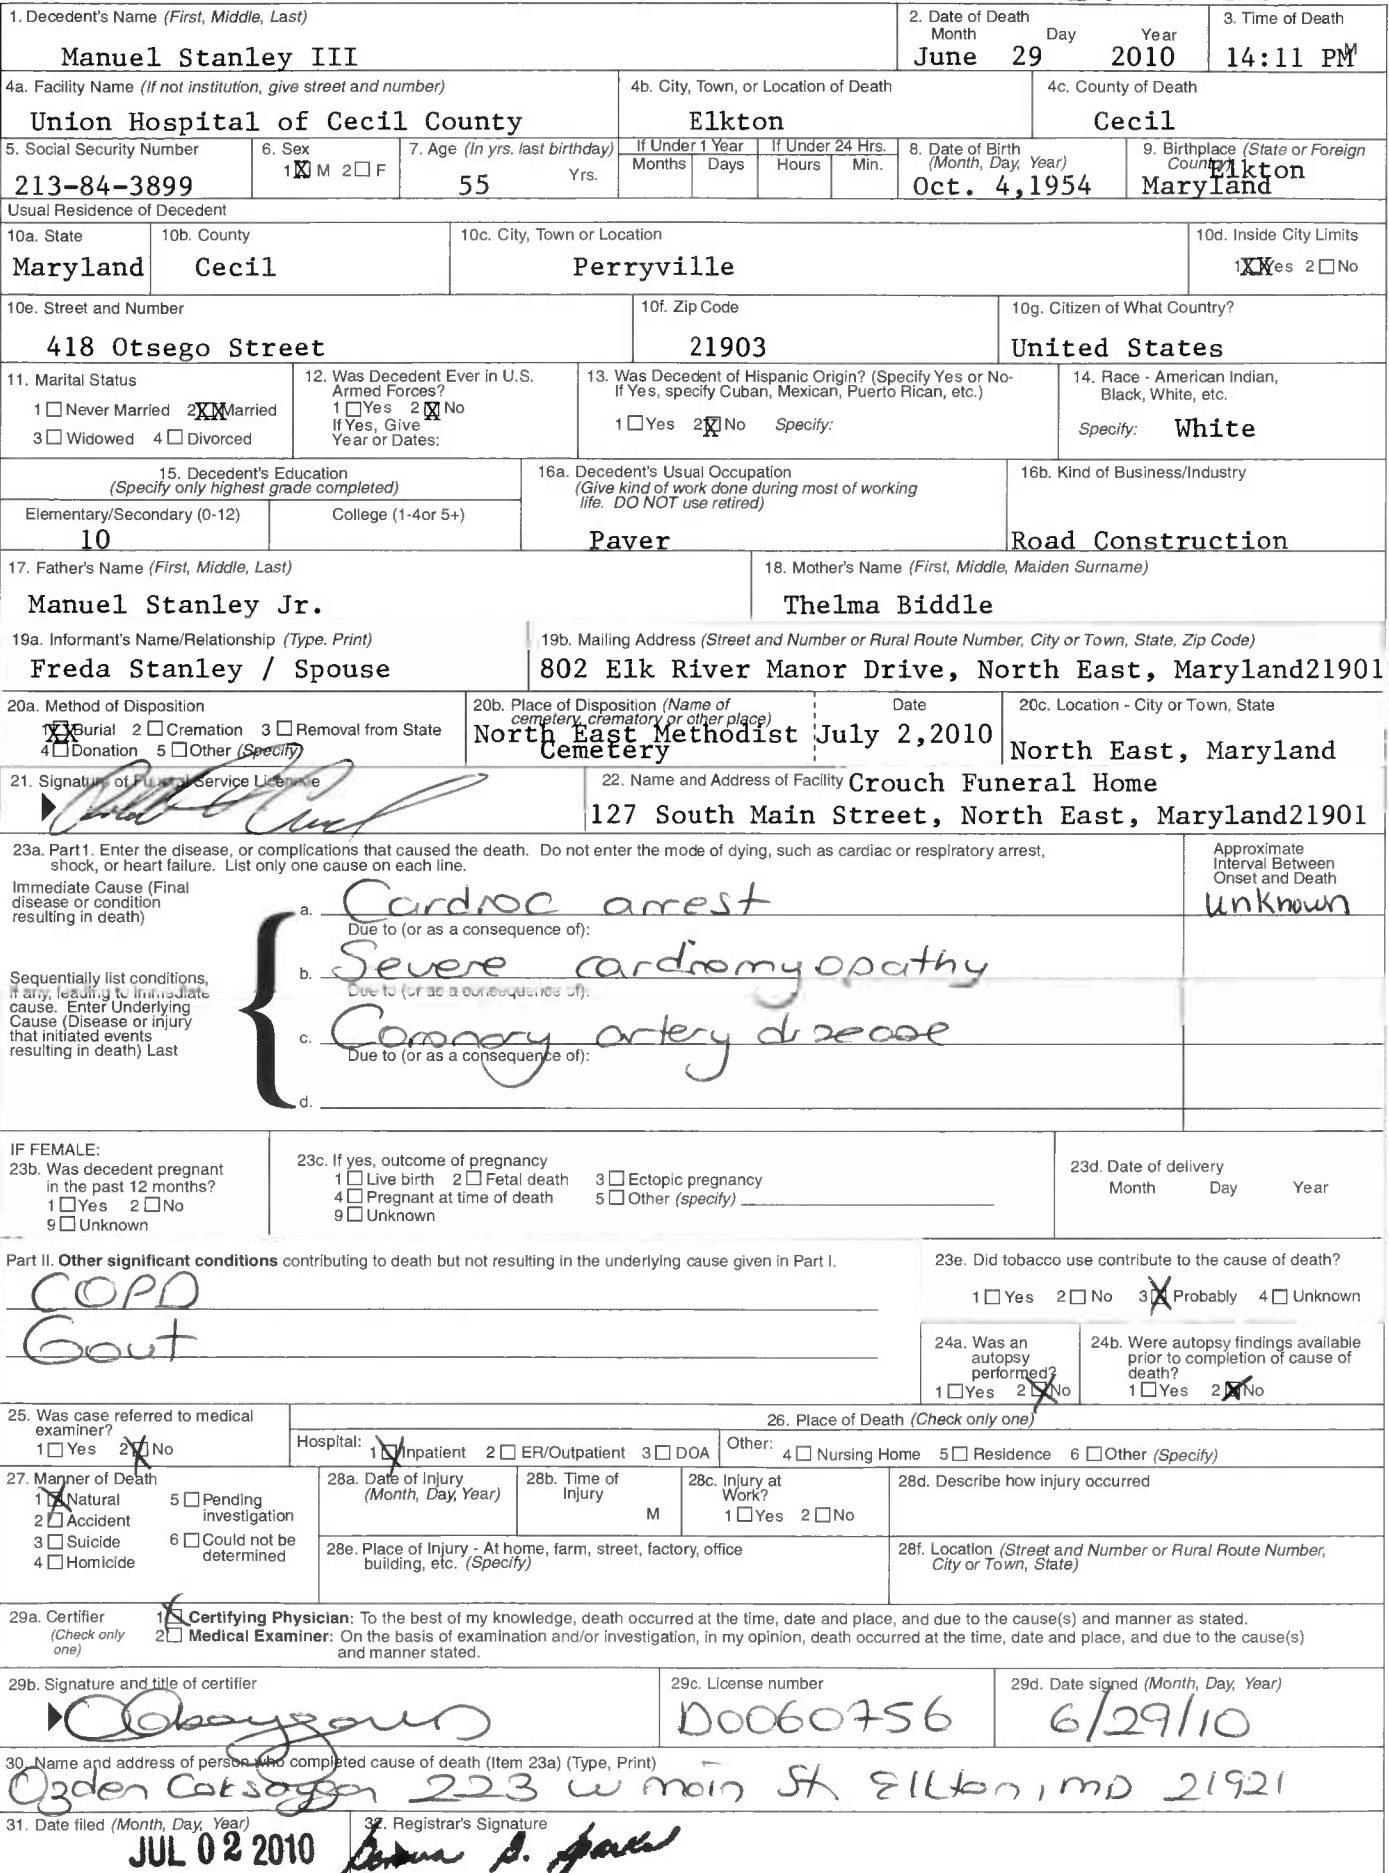 1. Decedent's Name (First, Middle, Last)
Manuel Stanley III
2. Date of Death
Month Day Year
June 29 2010
3. Time of Death
14:11 PM M
4a. Facility Name (If not institution, give street and number)
Union Hospital of Cecil County
4b. City, Town, or Location of Death
Elkton
4c. County of Death
Cecil
5. Social Security Number
213-84-3899
6. Sex
1 X M 2 ☐ F
7. Age (In yrs. last birthday)
55 Yrs.
If Under 1 Year
Months Days
If Under 24 Hrs.
Hours Min.
8. Date of Birth
(Month, Day, Year)
Oct. 4,1954
9. Birthplace (State or Foreign
Country)
Elkton
Maryland
Usual Residence of Decedent
10a. State
Maryland
10b. County
Cecil
10c. City, Town or Location
Perryville
10d. Inside City Limits
1 XX Yes 2 ☐ No
10e. Street and Number
418 Otsego Street
10f. Zip Code
21903
10g. Citizen of What Country?
United States
11. Marital Status
1 ☐ Never Married 2 XX Married
3 ☐ Widowed 4 ☐ Divorced
12. Was Decedent Ever in U.S.
Armed Forces?
1 ☐ Yes 2 X No
If Yes, Give
Year or Dates:
13. Was Decedent of Hispanic Origin? (Specify Yes or No-
If Yes, specify Cuban, Mexican, Puerto Rican, etc.)
1 ☐ Yes 2 X No Specify:
14. Race - American Indian,
Black, White, etc.
Specify: White
15. Decedent's Education
(Specify only highest grade completed)
Elementary/Secondary (0-12) College (1-4or 5+)
10
16a. Decedent's Usual Occupation
(Give kind of work done during most of working
life. DO NOT use retired)
Paver
16b. Kind of Business/Industry
Road Construction
17. Father's Name (First, Middle, Last)
Manuel Stanley Jr.
18. Mother's Name (First, Middle, Maiden Surname)
Thelma Biddle
19a. Informant's Name/Relationship (Type. Print)
Freda Stanley / Spouse
19b. Mailing Address (Street and Number or Rural Route Number, City or Town, State, Zip Code)
802 Elk River Manor Drive, North East, Maryland21901
20a. Method of Disposition
1 XX Burial 2 ☐ Cremation 3 ☐ Removal from State
4 ☐ Donation 5 ☐ Other (Specify)
20b. Place of Disposition (Name of
cemetery, crematory or other place)
North East Methodist
Cemetery
Date
July 2,2010
20c. Location - City or Town, State
North East, Maryland
21. Signature of Funeral Service Licensee
22. Name and Address of Facility Crouch Funeral Home
127 South Main Street, North East, Maryland21901
23a. Part1. Enter the disease, or complications that caused the death. Do not enter the mode of dying, such as cardiac or respiratory arrest,
shock, or heart failure. List only one cause on each line.
Approximate
Interval Between
Onset and Death
unknown
Immediate Cause (Final
disease or condition
resulting in death)
a. Cardiac arrest
Due to (or as a consequence of):
Sequentially list conditions,
if any, leading to immediate
cause. Enter Underlying
Cause (Disease or injury
that initiated events
resulting in death) Last
b. Severe cardiomyopathy
Due to (or as a consequence of):
c. Coronary artery disease
Due to (or as a consequence of):
d.
IF FEMALE:
23b. Was decedent pregnant
in the past 12 months?
1 ☐ Yes 2 ☐ No
9 ☐ Unknown
23c. If yes, outcome of pregnancy
1 ☐ Live birth 2 ☐ Fetal death 3 ☐ Ectopic pregnancy
4 ☐ Pregnant at time of death 5 ☐ Other (specify)
9 ☐ Unknown
23d. Date of delivery
Month Day Year
Part II. Other significant conditions contributing to death but not resulting in the underlying cause given in Part I.
COPD
Gout
23e. Did tobacco use contribute to the cause of death?
1 ☐ Yes 2 ☐ No 3 X Probably 4 ☐ Unknown
24a. Was an
autopsy
performed?
1 ☐ Yes 2 X No
24b. Were autopsy findings available
prior to completion of cause of
death?
1 ☐ Yes 2 X No
25. Was case referred to medical
examiner?
1 ☐ Yes 2 X No
26. Place of Death (Check only one)
Hospital: 1 X Inpatient 2 ☐ ER/Outpatient 3 ☐ DOA
Other: 4 ☐ Nursing Home 5 ☐ Residence 6 ☐ Other (Specify)
27. Manner of Death
1 X Natural 5 ☐ Pending
investigation
2 ☐ Accident
3 ☐ Suicide 6 ☐ Could not be
determined
4 ☐ Homicide
28a. Date of Injury
(Month, Day, Year)
28b. Time of
Injury
M
28c. Injury at
Work?
1 ☐ Yes 2 ☐ No
28d. Describe how injury occurred
28e. Place of Injury - At home, farm, street, factory, office
building, etc. (Specify)
28f. Location (Street and Number or Rural Route Number,
City or Town, State)
29a. Certifier
(Check only
one)
1 X Certifying Physician: To the best of my knowledge, death occurred at the time, date and place, and due to the cause(s) and manner as stated.
2 ☐ Medical Examiner: On the basis of examination and/or investigation, in my opinion, death occurred at the time, date and place, and due to the cause(s)
and manner stated.
29b. Signature and title of certifier
29c. License number
D0060756
29d. Date signed (Month, Day, Year)
6/29/10
30. Name and address of person who completed cause of death (Item 23a) (Type, Print)
223 W main St, Elkton, MD 21921
31. Date filed (Month, Day, Year)
JUL 02 2010
32. Registrar's Signature